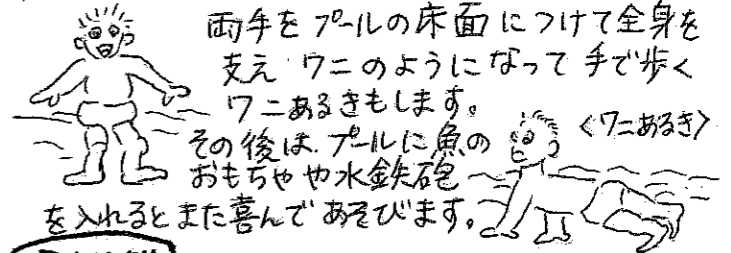 両手をプールの床面につけて全身を
支え ワニのようになって手で歩く
ワニあるきもします。
その後は、プールに魚の
〈ワニあるき〉
おもちゃや水鉄砲
を入れるとまた喜んであそびます。